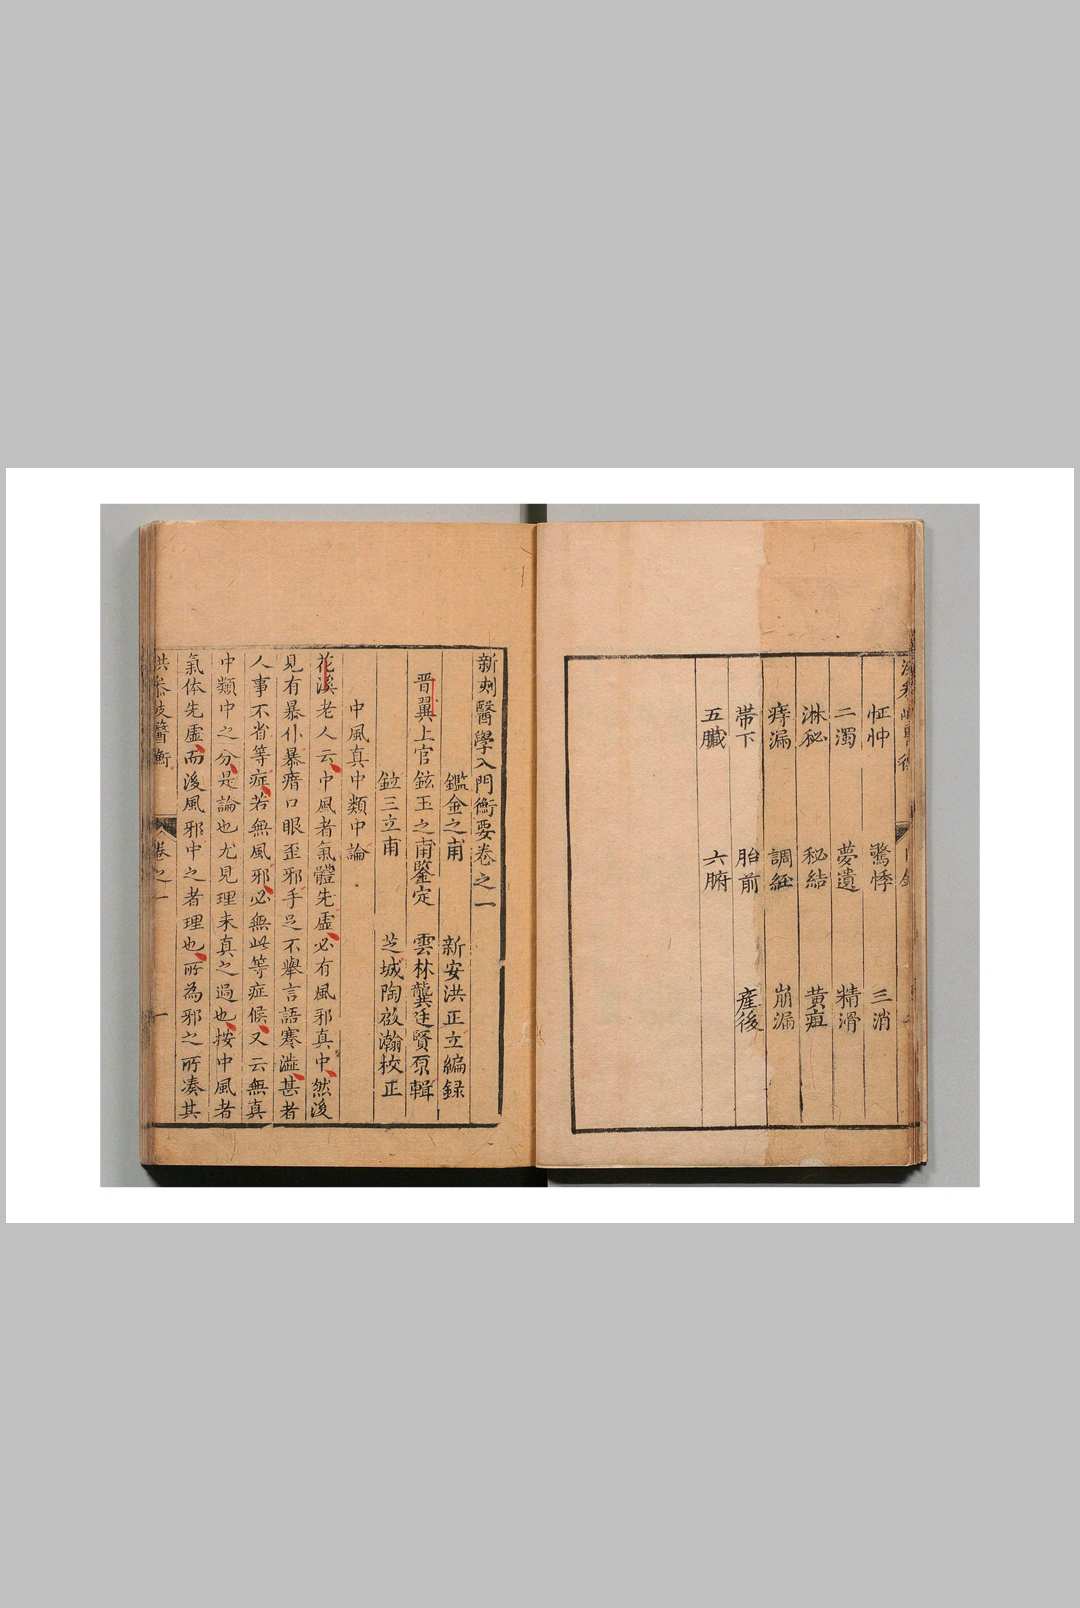 怔忡 驚悸 三消
二濁 夢遺 精滑
淋秘 秘結 黃疸
痔漏 調經 崩漏
帶下 胎前 產後
五臟 六腑
新刻醫學入門衡要卷之一
鑑金之甫 新安洪正立編録
晋翼上官鉉玉之甫鑒定 雲林龔廷賢原輯
竝三立甫 芝城陶啟瀚校正
中風真中類中論
花溪老人云中風者氣體先虛必有風邪真中然後
見有暴仆暴瘖口眼歪邪手足不舉言語寒澁甚者
人事不省等症若無風邪必無此等症候又云無真
中類中之分是論也尤見理未真之過也按中風者
氣体先虛而後風邪中之者理也所為邪之所湊其
醫衡 卷之一 一